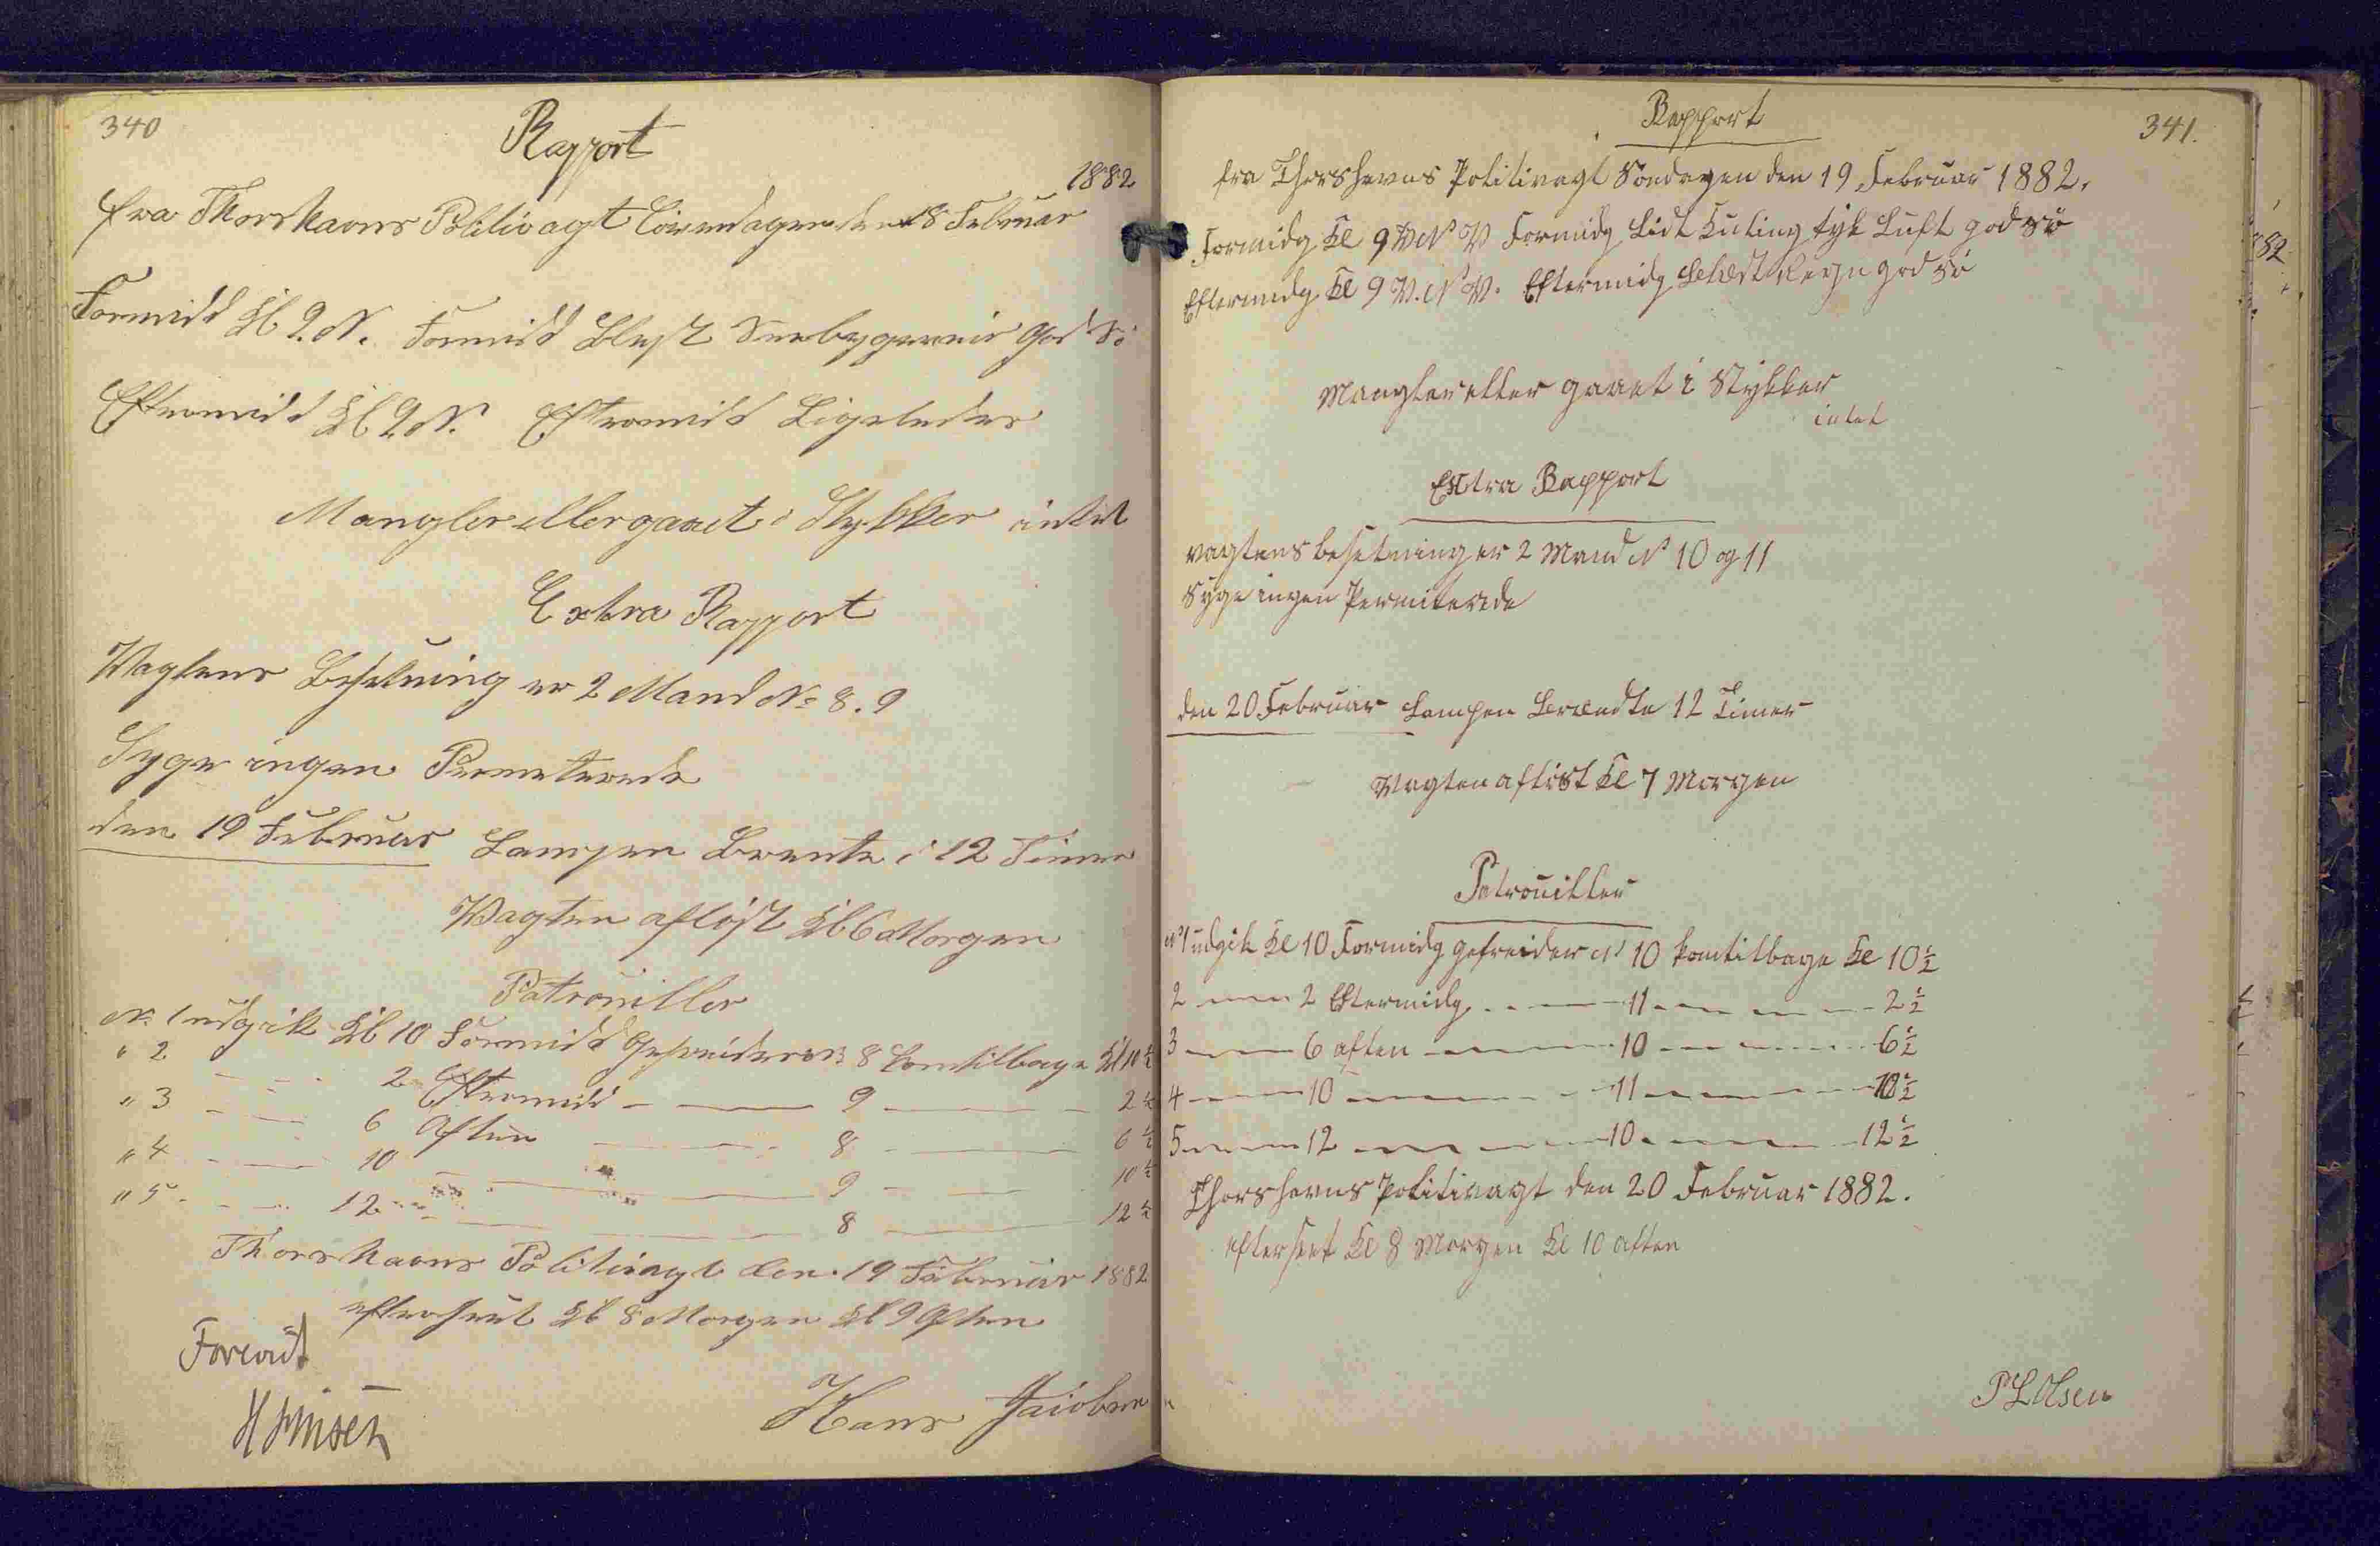 340
Rapport
1882
fra Thorshavns Politivagt Löverdagen den 18 Februar
Formidd Kl 9. N. Formidd Blæst Sneebygerveir god Sö
Eftermidd Kl 9 N. Eftermidd Ligeledes
Mangler eller gaaet i Stykker intet
Extra Rapport
Vagtens Besetning er 2 Mand No 8. 9
Syge ingen Permeterede
den 19 Februar Lampen Brente i 12 Timer
Vagten aflöst Kl 6 Morgen
Patrouiller
No. 1 udgik Kl 10 Formidd Gefreider No 8 komtilbage Kl 10 1/2
" 2 - - - 2 Eftermidd - - 9 - - 2 1/2
" 3 - - - 6 Aften - - 8 - - 6 1/2
" 4 - - - 10 - - 9 - - 10 1/2
" 5 - - - 12 - - 8 - - 12 1/2
Thorshavns Politivagt den 19 Februar 1882
efterseet Kl 8 Morgen Kl 9 Aften
Forevist
H Finsen
Hans Jacobsen
341.
Rapport
fra Thorshavns Politivagt Söndagen den 19 Februar 1882.
Formidg Kl 9 V N V Formidg Lidt Kuling tyk Luft god Sö
Eftermidg Kl 9 V. N V. Eftermidg Blæst Regn god Sö
Mangler eller gaaet i Stykker
intet
Extra Rapport
vagtens besetning er 2 Mand No 10 og 11
Syge ingen Permiterede
den 20 Februar Lampen Brændte 12 Timer
Vagten aflöst Kl 7 Morgen
Patrouiller
No 1 udgik Kl 10 Formidg gefreider No 10 komtilbage Kl 10 1/2
2 - - 2 Eftermidg - - 11 - - 2 1/2
3 - - 6 aften - - 10 - - 6 1/2
4 - - 10 - - 11 - - 10 1/2
5 - - 12 - - 10 - - 12 1/2
Thorshavns Politivagt den 20 Februar 1882.
efterseet Kl 8 Morgen Kl 10 aften
P L Olsen
882